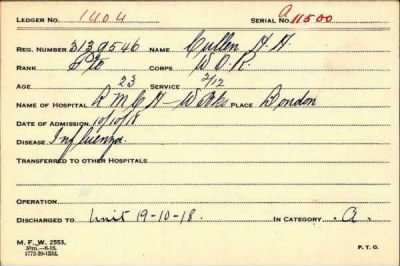 LEDGER NO. 1404 SERIAL NO. A 11500
REG. NUMBER 3139546 NAME Cullen H. H.
RANK Pte CORPS W.O.R.
AGE 23 SERVICE 2/12
NAME OF HOSPITAL PLACE London
DATE OF ADMISSION 10/10/18
DISEASE Influenza.
TRANSFERRED TO OTHER HOSPITALS
OPERATION
DISCHARGED TO Unit 19-10-18. IN CATEGORY A.
M. F. W. 2553.
50m.-6-18.
1772-39-1332.
P. T. O.